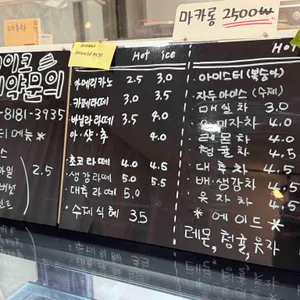 마카롱 2500₩
대추차
이크
예약문의
-8181-3935
티메뉴*
2.5
Hot ice
아메리카노 2.5 3.0
카페라떼 3.0 3.5
바닐라라떼 3.5 4.0
아·샷·추 4.0
초코라떼 4.0 4.5
생강라떼 5.0 5.5
대추라떼 5.0
수제식혜 35
Hot ice
아이스티(복숭아)
자두아이스(수제)
매실차 3.0
오미자차 4.0
레몬차 4.0
청귤차 4.0 4.5
대추차 4.5
배·생강차 4.5
유자차 4.5
*에이드*
레몬, 청귤, 유자